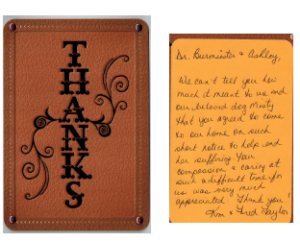 THANKS
Dr. Burmister & Ashley,
We can't tell you how
much it meant to us and
our beloved dog Misty
that you agreed to come
to our home on such
short notice to help end
her suffering. Your
compassion & caring at
such a difficult time for
us was very much
appreciated. Thank you!
& Fred Taylor